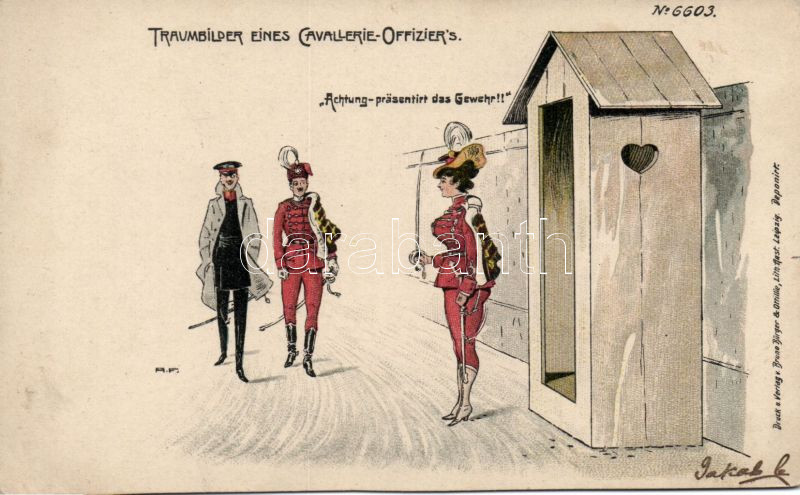 No 6603.
TRAUMBILDER EINES CAVALLERIE-OFFIZIER'S.
„Achtung-präsentirt das Gewehr!!"
darabanth
A.F.
Druck u. Verlag v. Bruno Bürger & Ottillie, Lith. Anst. Leipzig. Deponirt.
Jakab